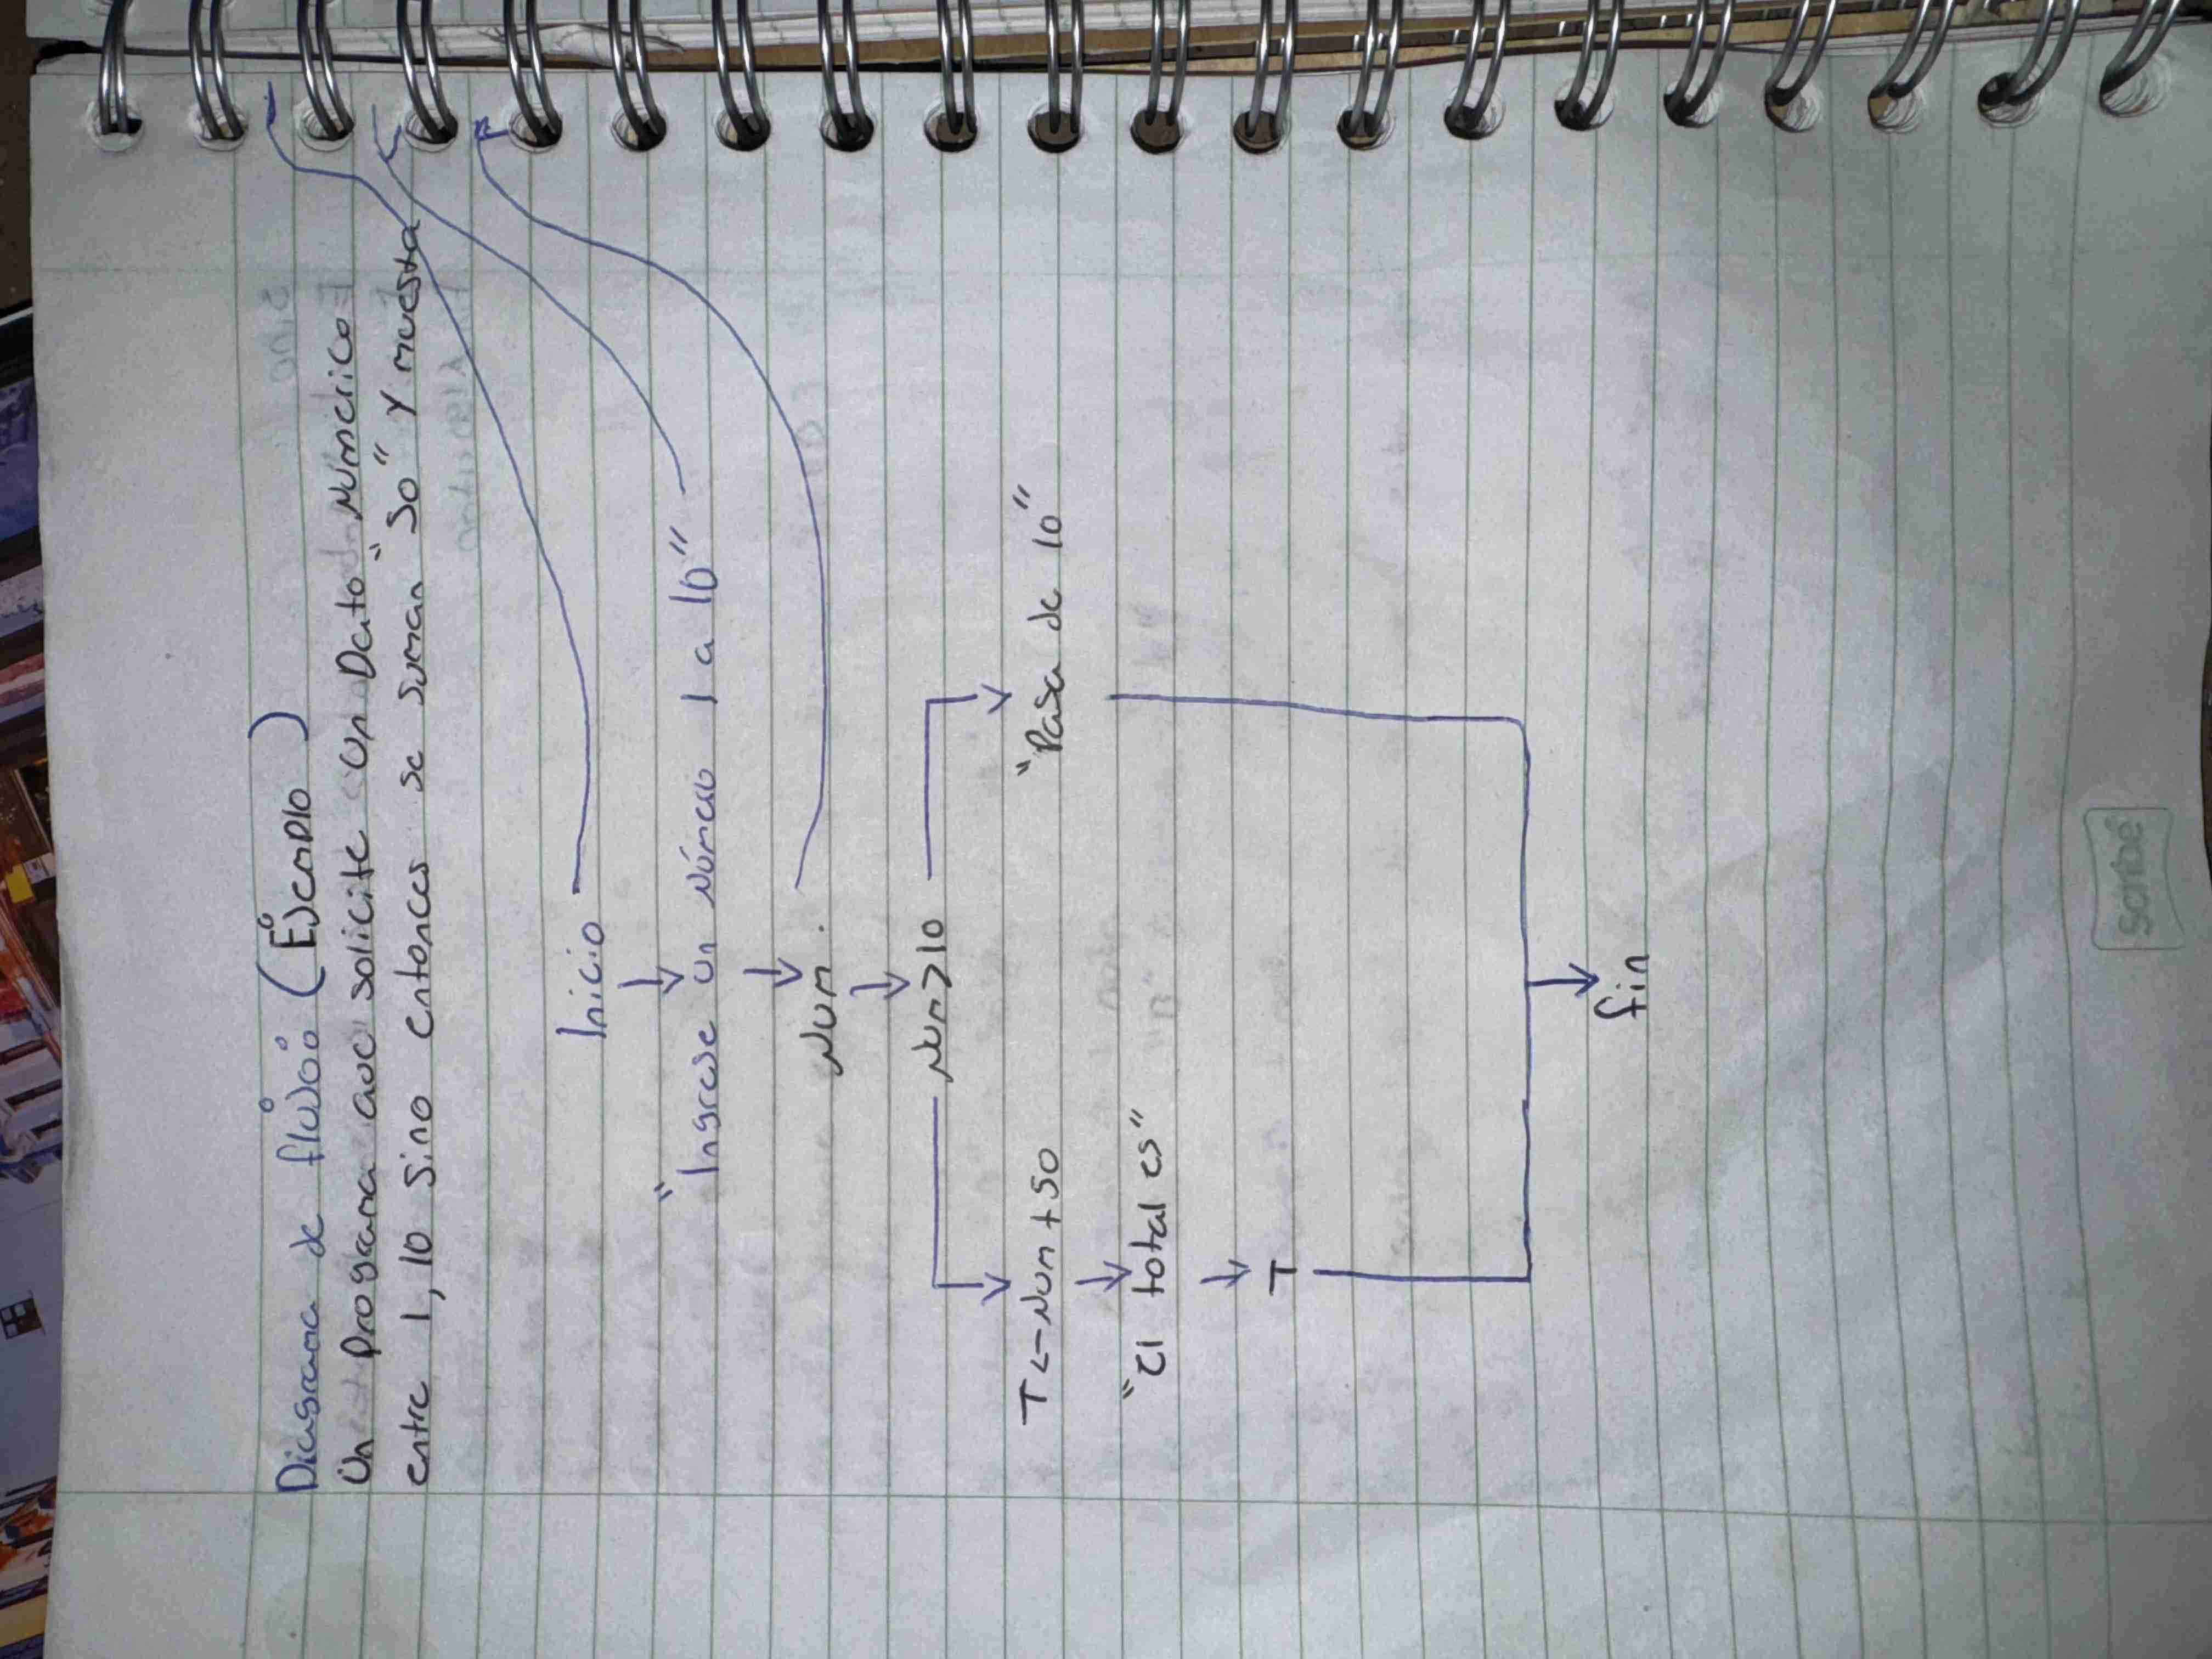 Diagrama de flujo (Ejemplo)
Un programa que solicite un Dato "Numerico
entre 1, 10 sino entonces se suman "50" y muestra
Inicio
"Ingrese un número 1 a 10"
Num.
Num>10
T<-Num+50
"Pasa de 10"
"El total es"
T
fin
Scribe